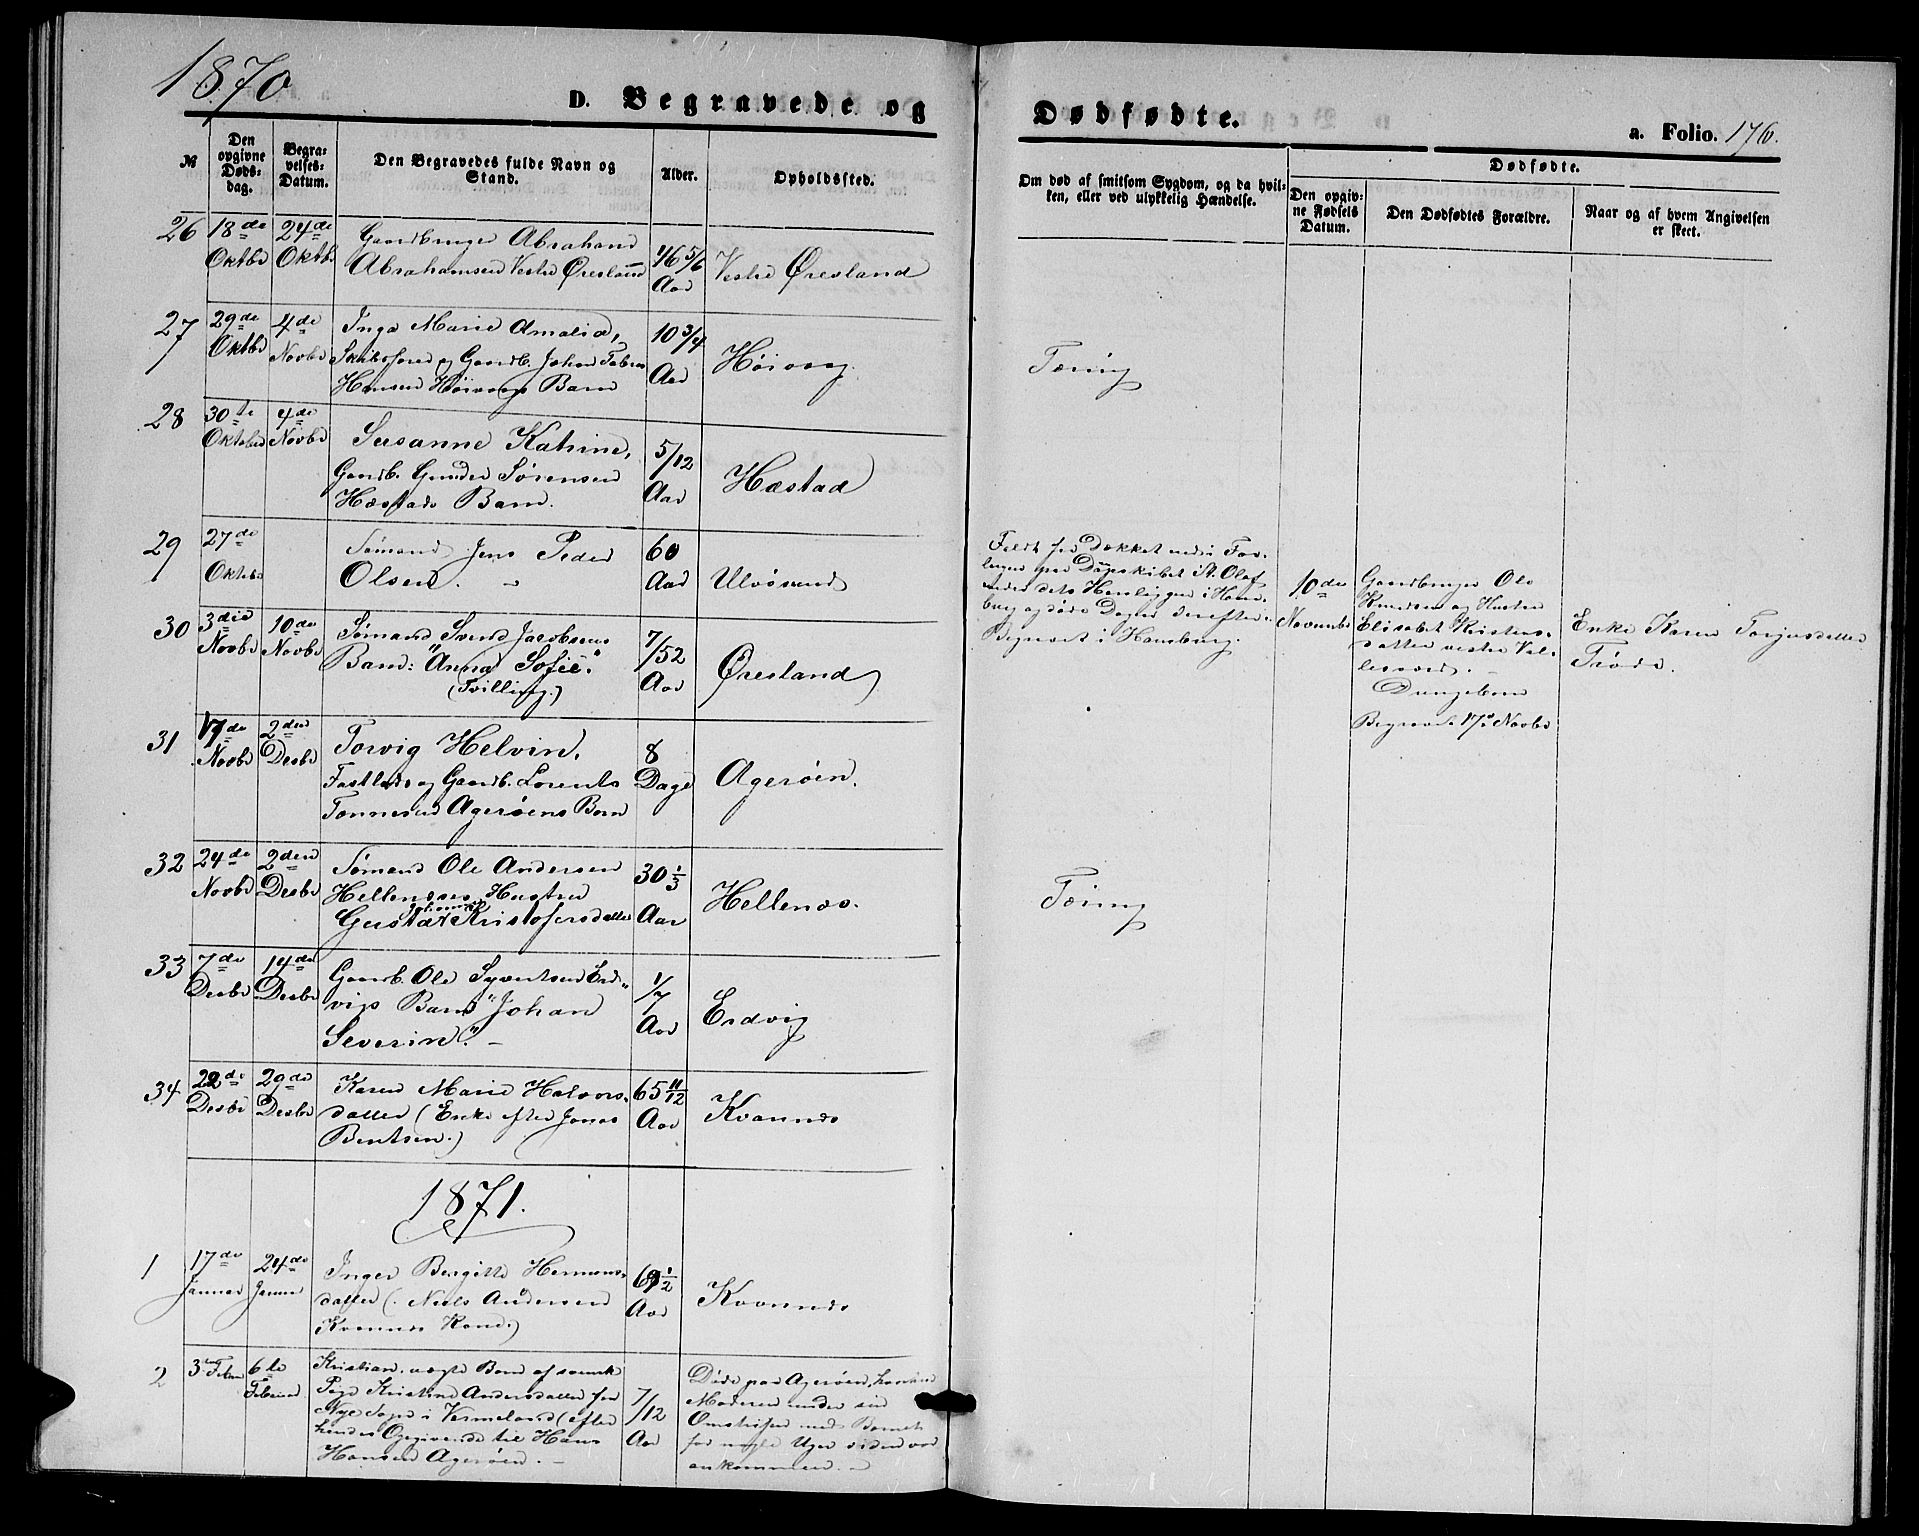 1870
D. Begravede og
Dødfødte.
a. Folio. 176.
№
Den opgivne Døds-dag.
Begra-velses-Datum.
Den Begravedes fulde Navn og Stand.
Alder.
Opholdssted.
Om død af smitsom Sygdom, og da hvil-
ken, eller ved ulykkelig Hændelse.
Dødfødte.
Den opgiv-ne Fødsels Datum.
Den Dødfødtes Forældre.
Naar og af hvem Angivelsen er skeet.
26 18de Oktbr 24de Oktbr
Gaardbruger Abraham
Abrahamsen Vestre Øresland
46 5/6 Aar
Vestre Øresland
27 29de Oktbr 4de Novbr
Inga Marie Amalia,
Skibsfører og Gaardb. Johan Tobias
Hansen Høivaags Barn
10 3/4 Aar
Høivaag
Tæring
28 30te Oktober 4de Novbr
Susanne Katrine,
Gaardb. Gunder Sørensen
Hæstads Barn.
5/12 Aar
Hæstad
29 27de Oktobr
Sømand Jens Peder
Olsen. -
60 Aar
Ulvøsund
Faldt fra Dækket ned i
paa Dampskibet St. Olaf
under dets Henliggen i Ham-
burg og døde Dagen derefter.
Begravet i Hamburg.
10de Novembr
Gaardbruger Ole
Knudsen og Hustru
Elisabet Kristens-
datter vestre Val-
lesverd. -
Drengebarn
Begravet 17de Novbr
Enke Karen Torjusdatter
30 3die Novbr 10de Novbr
Sømand Svend Jacobsens
Barn: "Anna Sofie."
(Tvilling.)
7/52 Aar
Øresland
31 17de Novbr 2den Desbr
Torvig Helvin,
og Gaardb. Lorents
Tønnesen Agerøens Barn
8 Dage
Agerøen.
32 24de Novbr 2den Desbr
Sømand Ole Andersen
Hellenæs Hustru
Gustava Kristofersdatter
30 1/3 Aar
Hellenæs.
Tæring
33 7de Desbr 14de Desbr
Gaardb. Ole Syvertsen Erd"
vigs Barn "Johan
Severin." -
1/7 Aar
Erdvig
34 22de Desbr 29de Desbr
Karen Marie Halvors-
datter (Enke efter Jonas
Bentsen.)
65 11/12 Aar
Kvannes
1871.
1 17de Januar 24de Januar
Inger Bergitte Hermans-
datter (. Niels Andersen
Kvannes Kone.)
69 1/2 Aar
Kvannes
2 3 Febr 6te Februar
Kristian, uægte Barn af svensk
Pige Kristine Andersdatter fra
Nye Sogn i Vermeland (efter
hendes Opgivende til Hans
Hansen Agerøen. -
7/12 Aar
Døde paa Agerøen, hvorhen
Moderen under sin
Omstrifen med Barnet
for nogle Uger siden var
ankommen. -